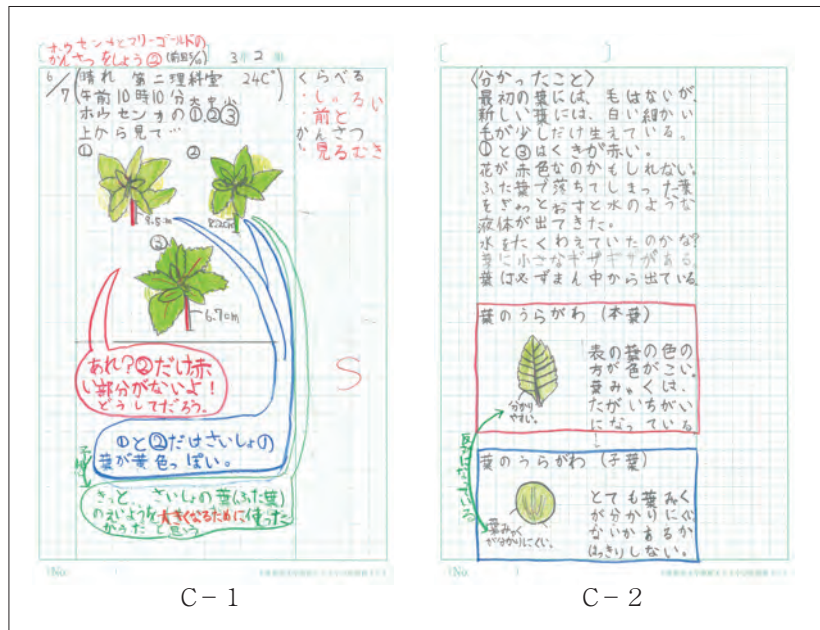 ホウセンカとマリーゴールドの
かんさつをしよう② (前回5/10) 3年2組
6/7
(晴れ 第二理科室 24C°)
午前10時10分
ホウセンカの①,②,③
上から見て…
くらべる
・しゅるい
・前と
かんさつ
・見るむき
① ②
8.5cm
8.2cm
③
6.7cm
S
あれ?②だけ赤
い部分がないよ!
どうしてだろう。
①と②だけさいしょの
葉が黄色っぽい。
予想
きっと、さいしょの葉(ふた葉)
のえいようを大きくなるために使った
からだと思う
(No. )
C-1
〈分かったこと〉
最初の葉には、毛はないが、
新しい葉には、白い細かい
毛が少しだけ生えている。
①と③はくきが赤い。
花が赤色なのかもしれない。
ふた葉で落ちてしまった葉
をぎゅっとおすと水のような
液体が出てきた。
水をたくわえていたのかな?
葉に小さなギザギザがある。
葉は必ずまん中から出ている。
葉のうらがわ (本葉)
表の葉の色の
方が色がこい。
葉みゃくは、
たがいちがい
になっている
分かり
やすい。
葉のうらがわ (子葉)
とても葉みゃく
が分かりにくい。
ないかあるか
はっきりしない。
葉みゃく
が分かりにくい。
(No. )
C-2